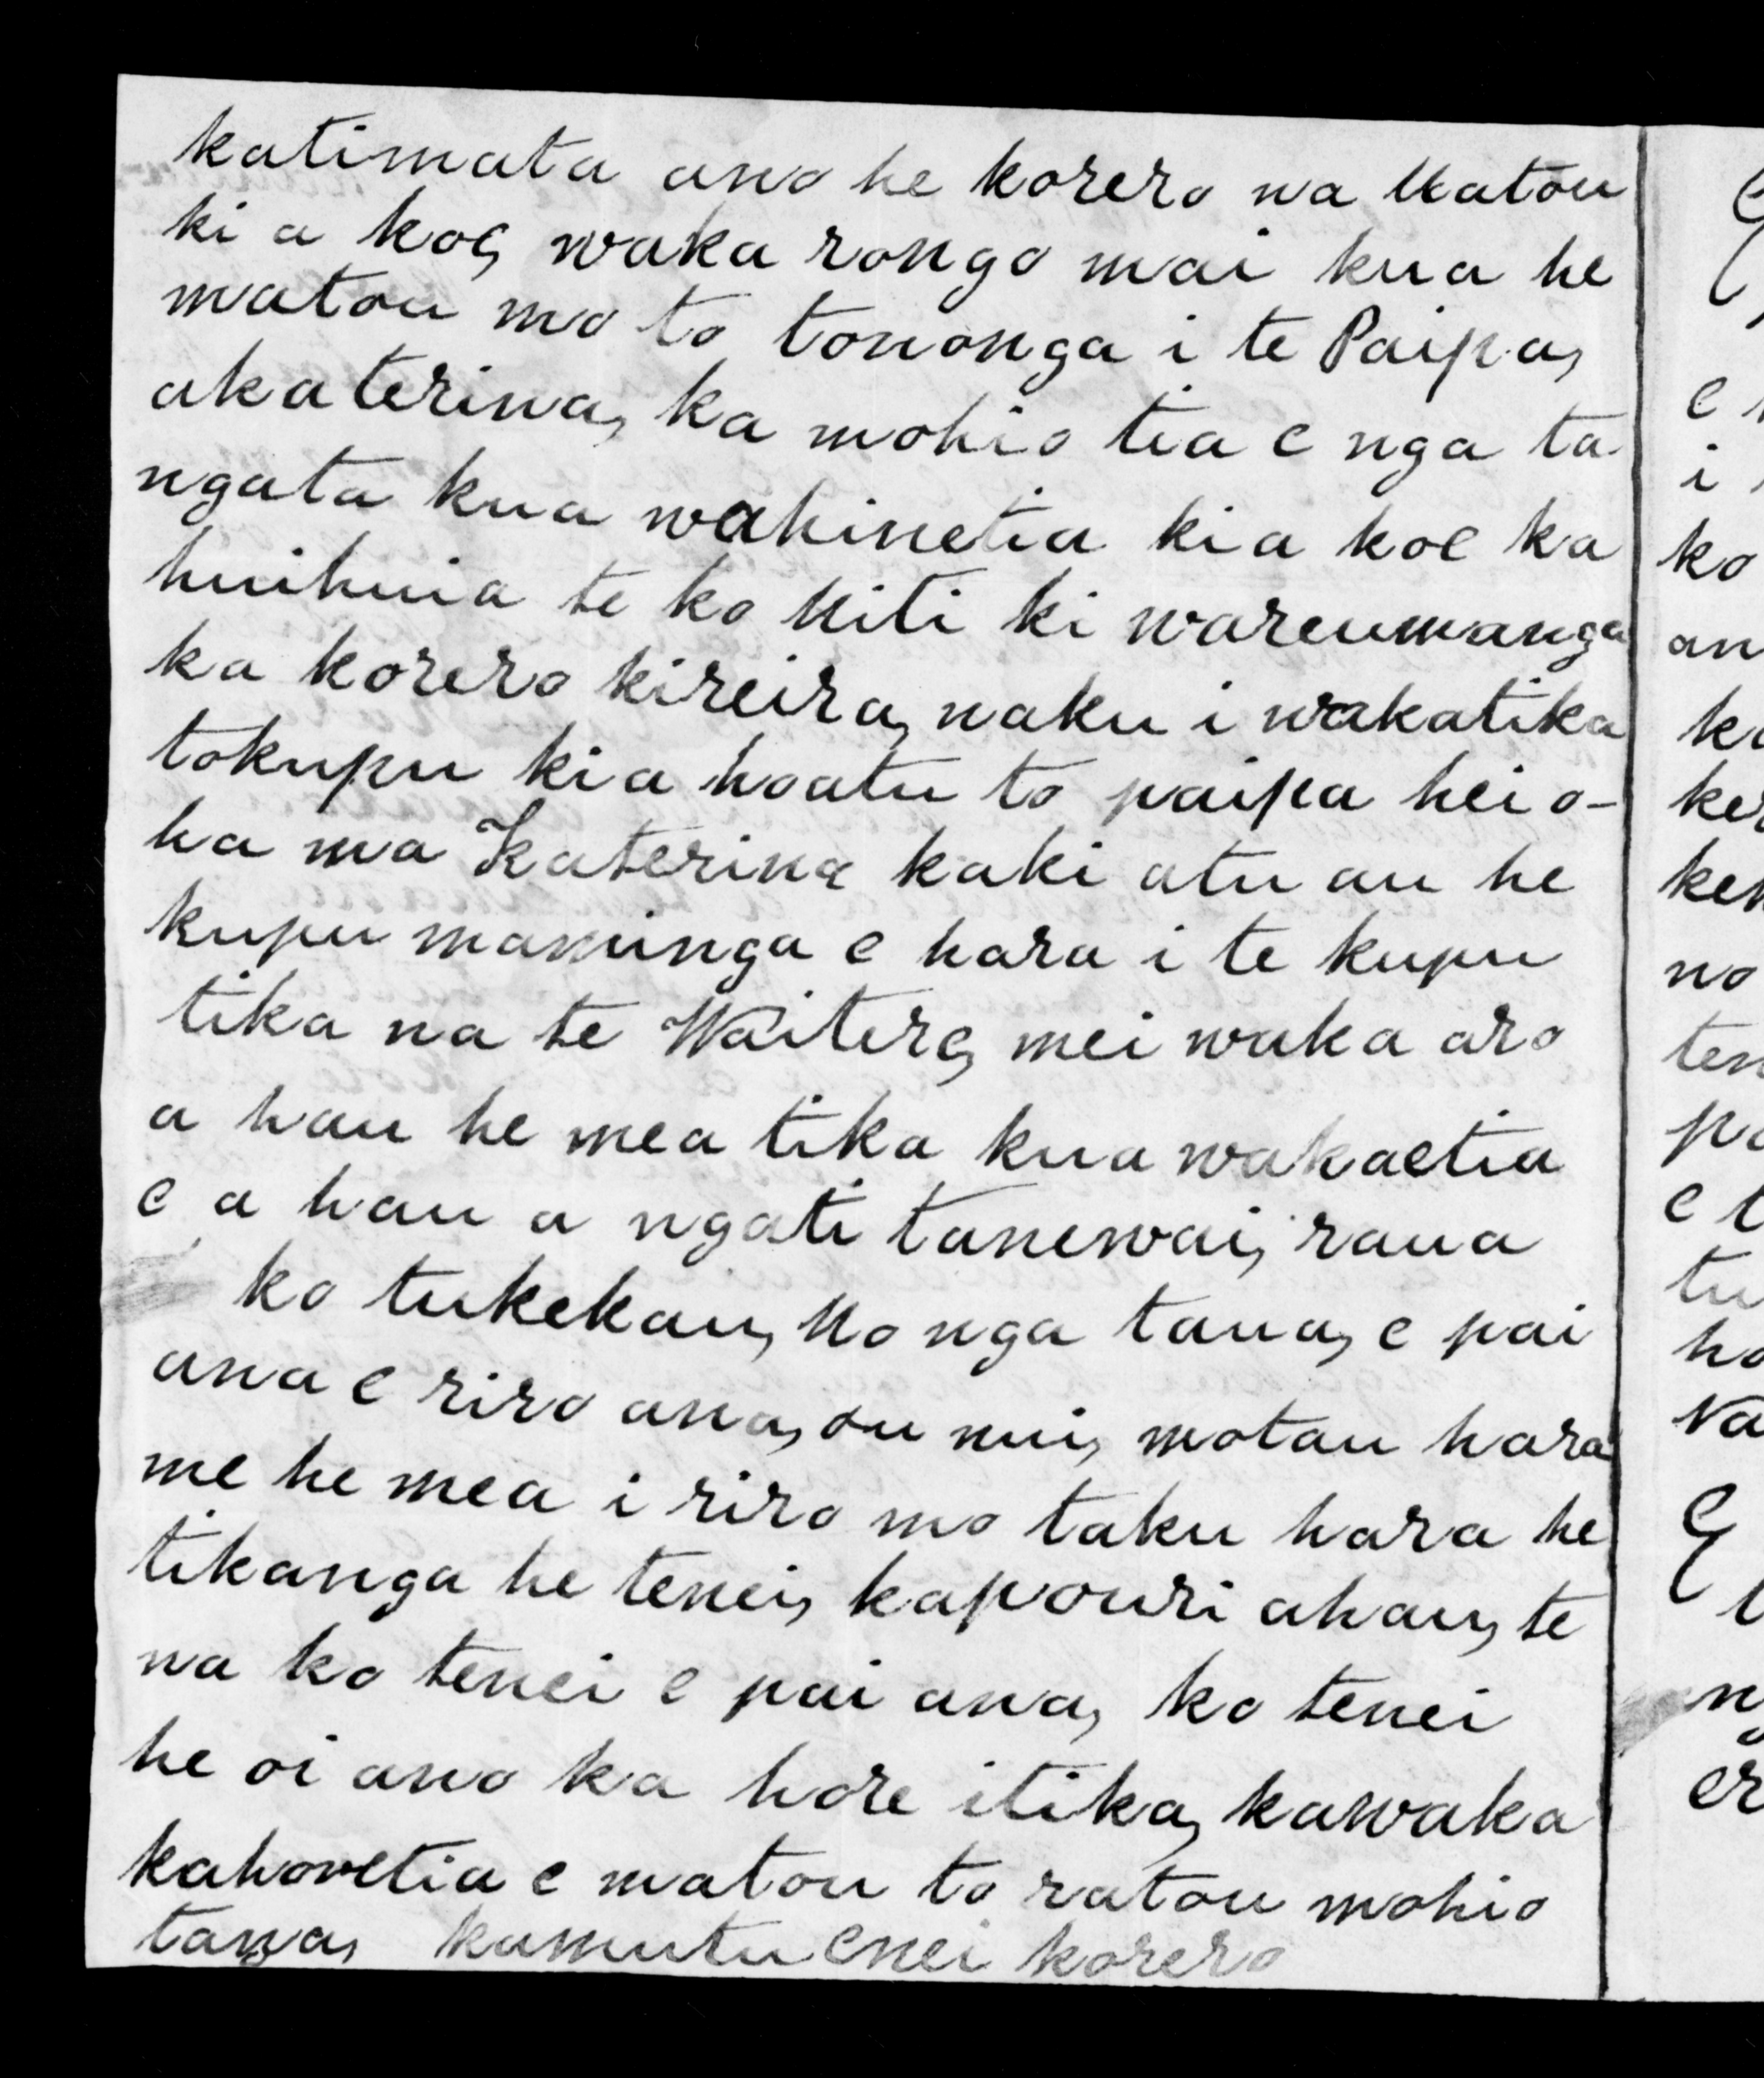 katimata ano he korero na Matou
ki a koe, waka rongo mai kua he
matou mo to tononga i te Paipa,
akaterina, ka mohio tia e nga ta
ngata kua wahinetia kia koe ka
huihuia te ko Miti ki wareumanga
ka korero kireira, naku i wakatika
tokupu kia hoatu to paipa hei o-
ha ma Katerina kaki atu au he
kupu maminga e hara i te kupu
tika na te Waitere, mei waka aro
a hau he mea tika kua wakaetia
e a hau a ngati tanewai, raua
ko tukekau, Mo nga taua, e pai
ana e riro ana, ou mi, motau hara
me he mea i riro mo taku hara he
tikanga he tenei, kapouri ahau, te
na ko tenei e pai ana, ko tenei
he oi ano ka hore itika, kawaka
kahoretia e matou to ratou mohio
tana, kamutu enei korero
e
i
ko
an
ka
ker
ken
no
ten
pa
e
tu
ho
Na
E
n
er